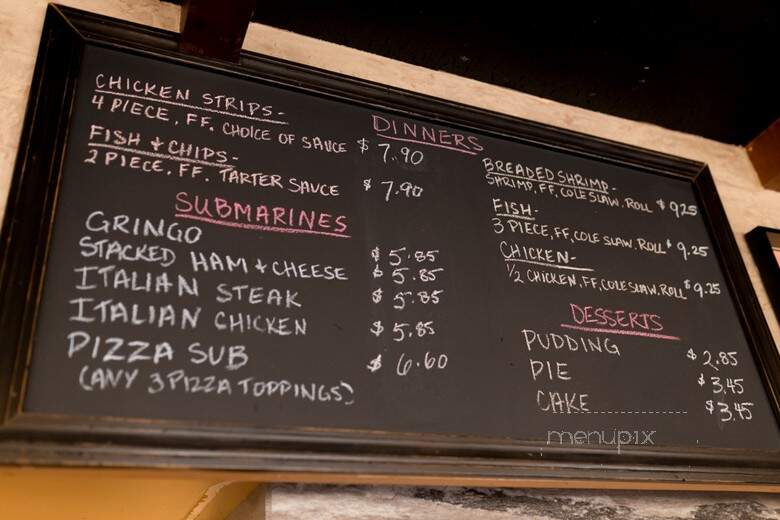 DINNERS
CHICKEN STRIPS-
4 PIECE, FF. CHOICE OF SAUCE $ 7.90
FISH & CHIPS-
2 PIECE, FF. TARTER SAUCE $ 7.90
SUBMARINES
GRINGO $ 5.85
STACKED HAM & CHEESE $ 5.85
ITALIAN STEAK $ 5.85
ITALIAN CHICKEN $ 5.85
PIZZA SUB $ 6.60
(ANY 3 PIZZA TOPPINGS)
BREADED SHRIMP-
SHRIMP, FF, COLE SLAW. ROLL $ 9.25
FISH-
3 PIECE, FF, COLE SLAW. ROLL $ 9.25
CHICKEN-
1/2 CHICKEN, FF. COLE SLAW. ROLL $ 9.25
DESSERTS
PUDDING $ 2.85
PIE $ 3.45
CAKE $ 3.45
menupix